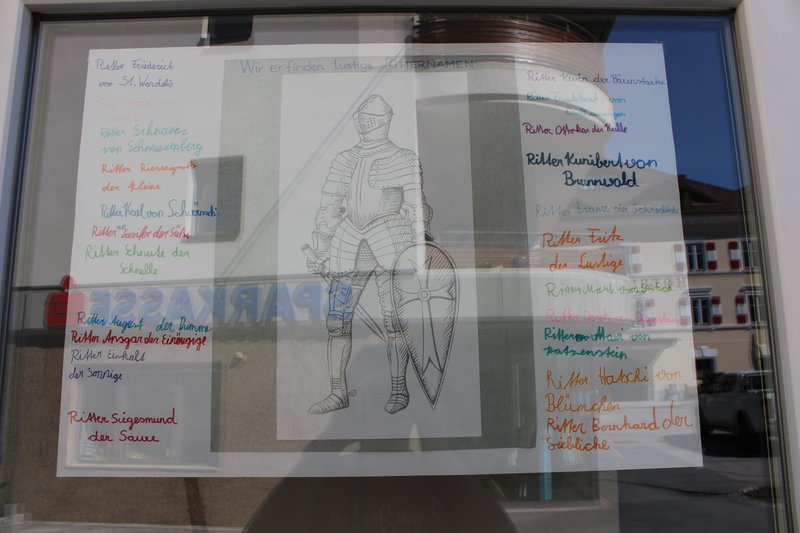 Wir erfinden lustige RITTERNAMEN
Ritter Friederich
von St. Wendelin
Ritter
Ritter Schnarz
von Schnauzenberg
Ritter Riesengroß
der kleine
Ritter Karl von
Ritter der Süße
Ritter Schnute der
Schnelle
Ritter August der Dumme
Ritter Ansgar der Einäugige
Ritter Eishalt
der Sonnige
Ritter Siegesmund
der Saure
Ritter Kevin der Bärenstarke
Ritter von
Ritter Ottokar der Kalle
Ritter Kunibert von
Brunnwald
Ritter Franz der Schreckliche
Ritter Fritz
der Lustige
Ritter Mark von
Ritter von
Ritter Maxi von
Katzenstein
Ritter Hatschi von
Blümchen
Ritter Bernhard der
Liebliche
SPARKASSE